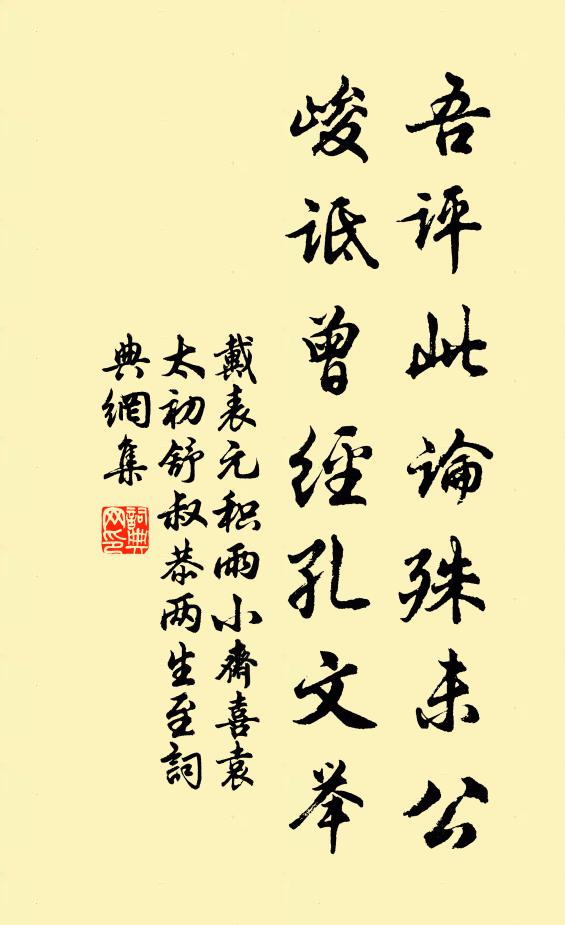 吾评此論殊未公
峻诋曾經孔文举
戴表元积雨小齋喜袁
太初舒叔恭两生至詞
典網集
詞典网印